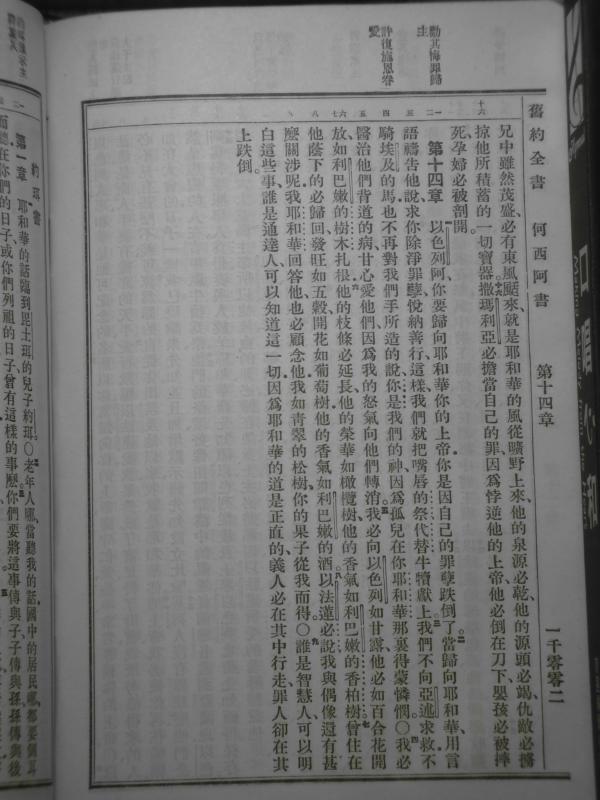 舊約全書 何西阿書 第十四章 一千零零二
勸其悔罪歸
主
許復施恩眷
愛
兄中雖然茂盛、必有東風颳來、就是耶和華的風從曠野上來、他的泉源必乾、他的源頭必竭、仇敵必擄
掠他所積蓄的一切寶器。十六撒瑪利亞必擔當自己的罪、因爲悖逆他的上帝、他必倒在刀下、嬰孩必被摔
死、孕婦必被剖開。
第十四章 以色列阿、你要歸向耶和華你的上帝、你是因自己的罪孽跌倒了。二當歸向耶和華、用言
語禱告他說、求你除淨罪孽、悅納善行、這樣、我們就把嘴唇的祭代替牛犢獻上。三我們不向亞述求救、不
騎埃及的馬、也不再對我們手所造的說、你是我們的神、因爲孤兒在你耶和華那裏得蒙憐憫。○四我必
醫治他們背道的病、甘心愛他們、因爲我的怒氣向他們轉消。五我必向以色列如甘露、他必如百合花開
放、如利巴嫩的樹木扎根。六他的枝條必延長、他的榮華如橄欖樹、他的香氣如利巴嫩的香柏樹。七曾住在
他蔭下的必歸回、發旺如五穀、開花如葡萄樹、他的香氣如利巴嫩的酒。八以法蓮必說、我與偶像還有甚
麼關涉呢、我耶和華回答他、也必顧念他、我如青翠的松樹、你的果子從我而得。○九誰是智慧人、可以明
白這些事、誰是通達人、可以知道這一切、因爲耶和華的道是正直的、義人必在其中行走、罪人卻在其
上跌倒。
約珥書
第一章 耶和華的話臨到毘土珥的兒子約珥。○二老年人哪、當聽我的話、國中的居民哪、都要側耳
而聽、在你們的日子、或你們列祖的日子、曾有這樣的事麼。三你們要將這事傳與子、子傳與孫、孫傳與後
口唱心和